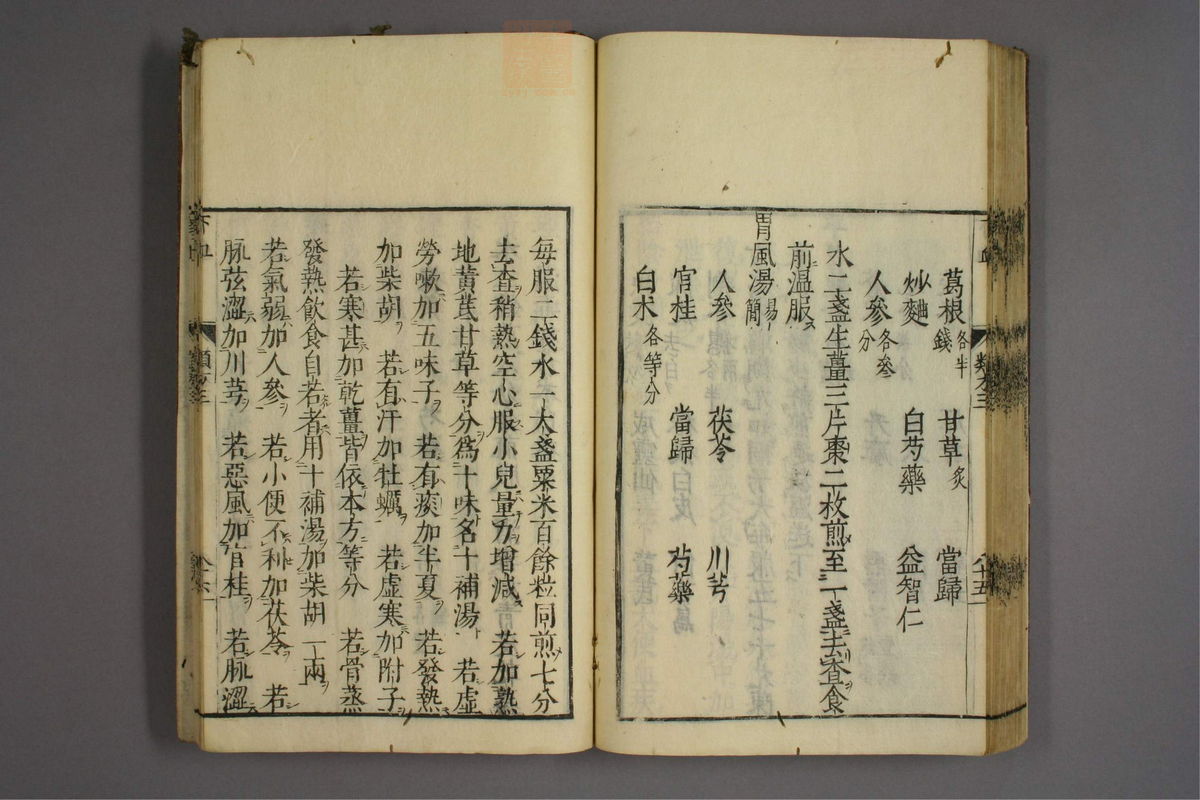 葛根 各半錢 甘草 炙 當歸
炒麯 白芍藥 益智仁
人參 各叄分
水二盞生薑三片棗二枚煎至一盞去查食
前溫服
胃風湯 簡易
人參 茯苓 川芎
官桂 當歸 芍藥
白朮 各等分
每服二錢水一大盞粟米百餘粒同煎七分
去查稍熱空心服小兒量力增減 若加熟
地黃茋甘草等分為十味名十補湯 若虛
勞嗽加五味子 若有痰加半夏 若發熱
加柴胡 若有汗加牡蠣 若虛寒加附子
若寒甚加乾薑皆依本方等分 若骨蒸
發熱飲食自若者用十補湯加柴胡一兩
若氣弱加人參 若小便不利加茯苓 若
脉弦澀加川芎 若惡風加官桂 若脉澀
下血